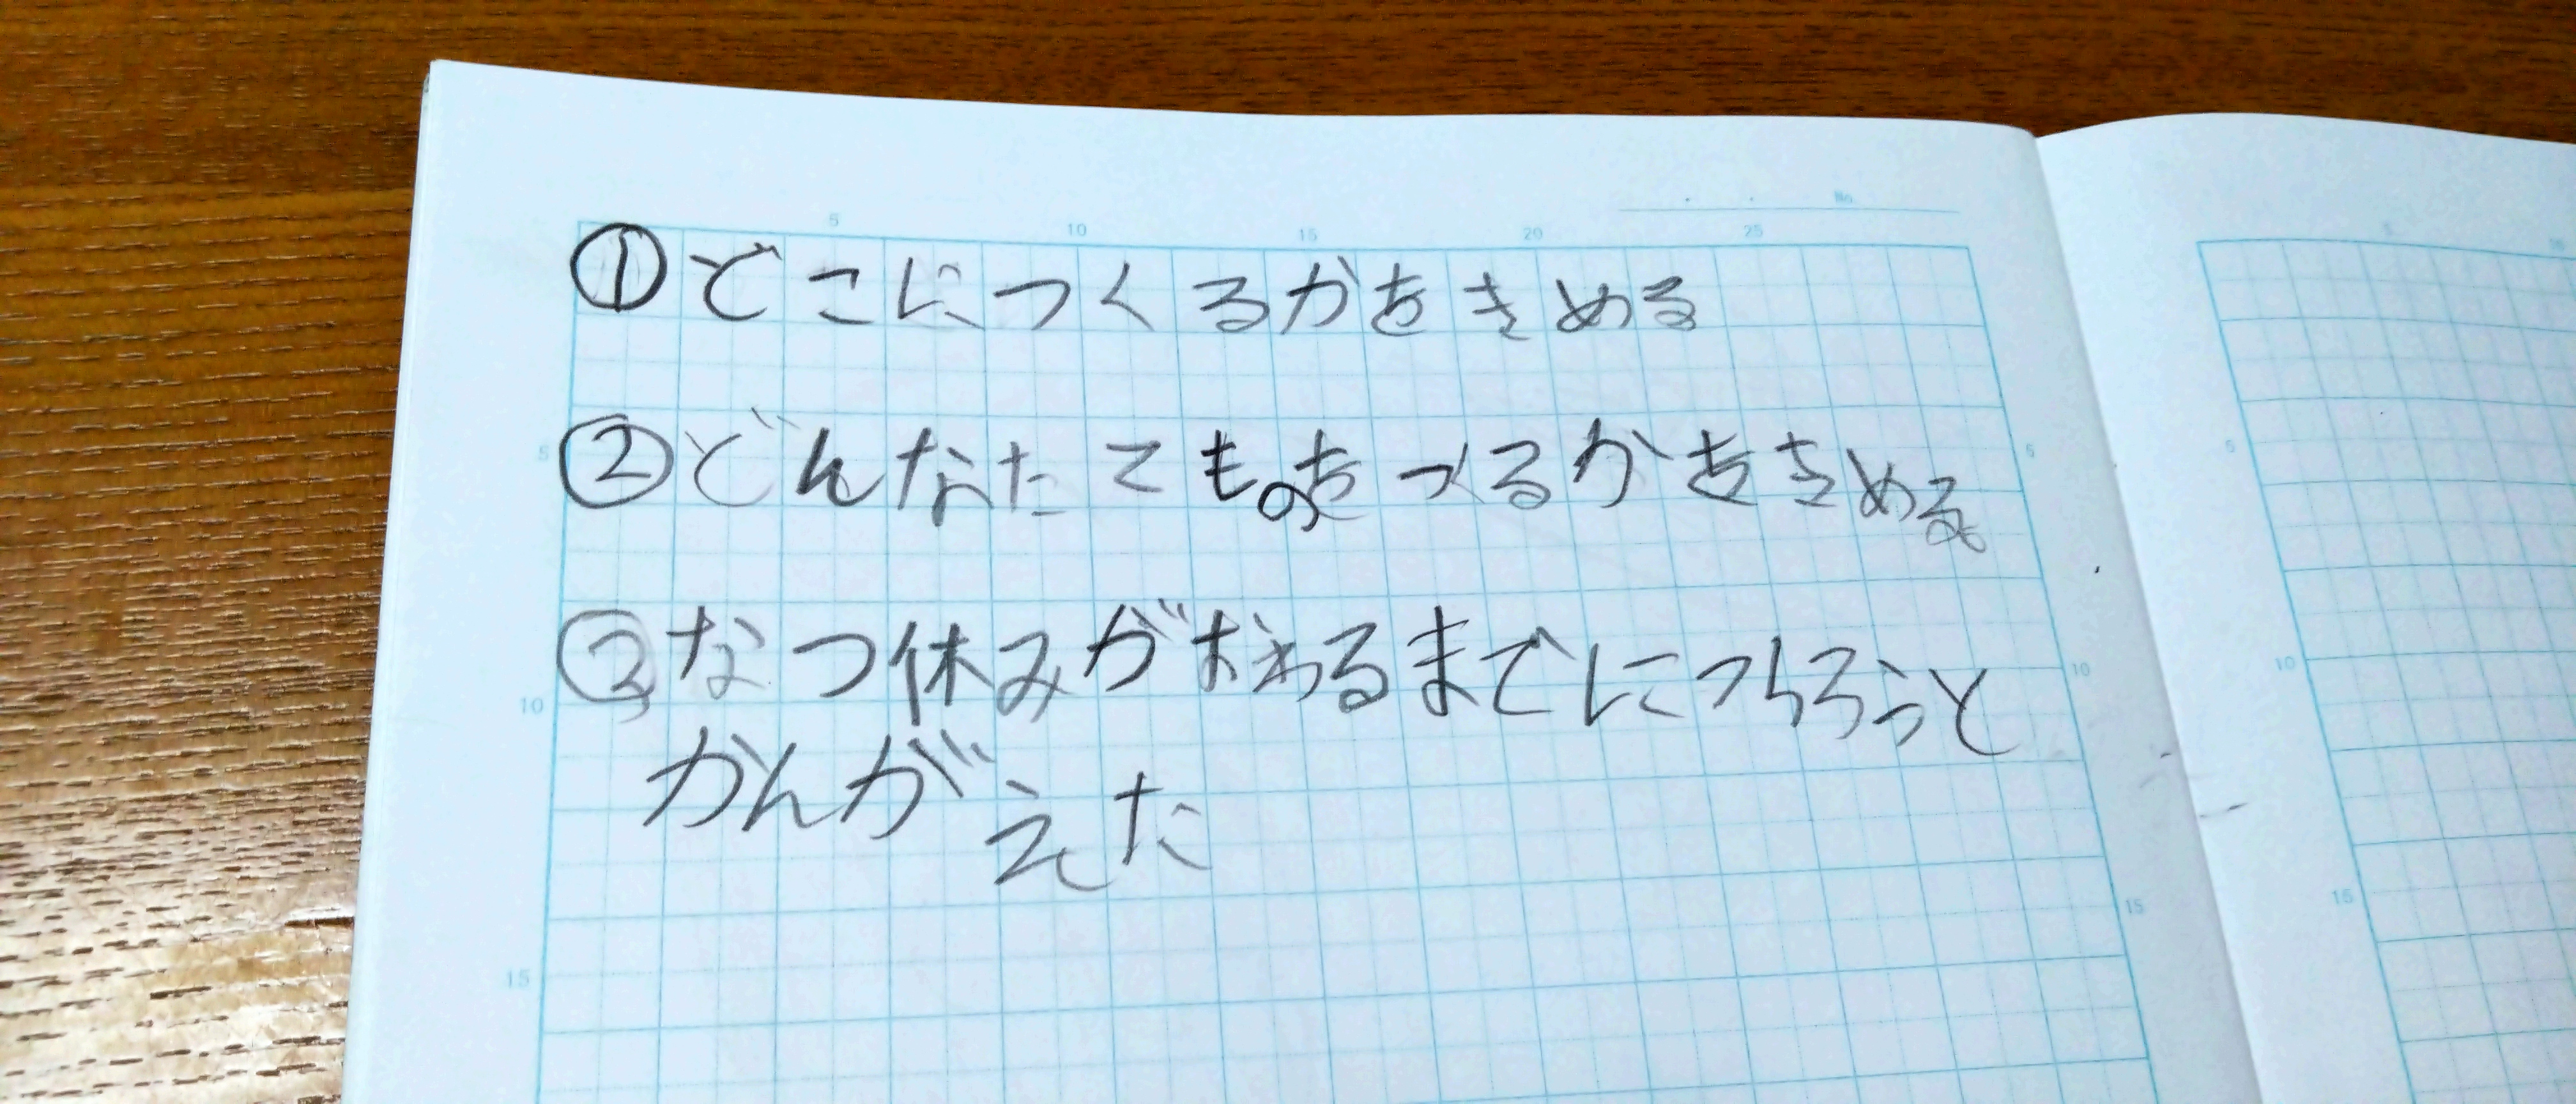 ①どこにつくるかをきめる
②どんなたてものをつくるかをきめる
③なつ休みがおわるまでにつくろうと
かんがえた
No.
5
10
15
20
25
5
10
15
5
10
15
5
10
15